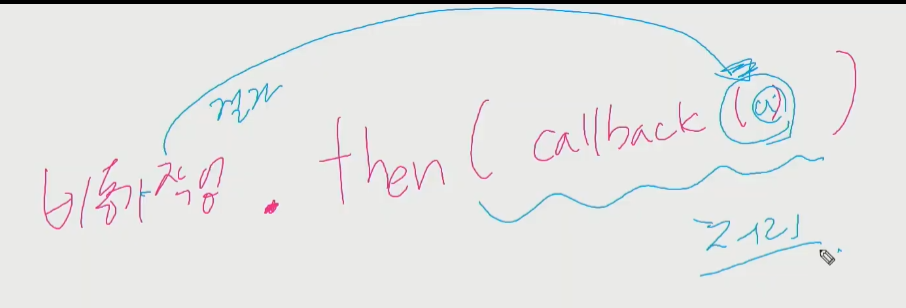 결과
비동기작업 . then ( callback (a) )